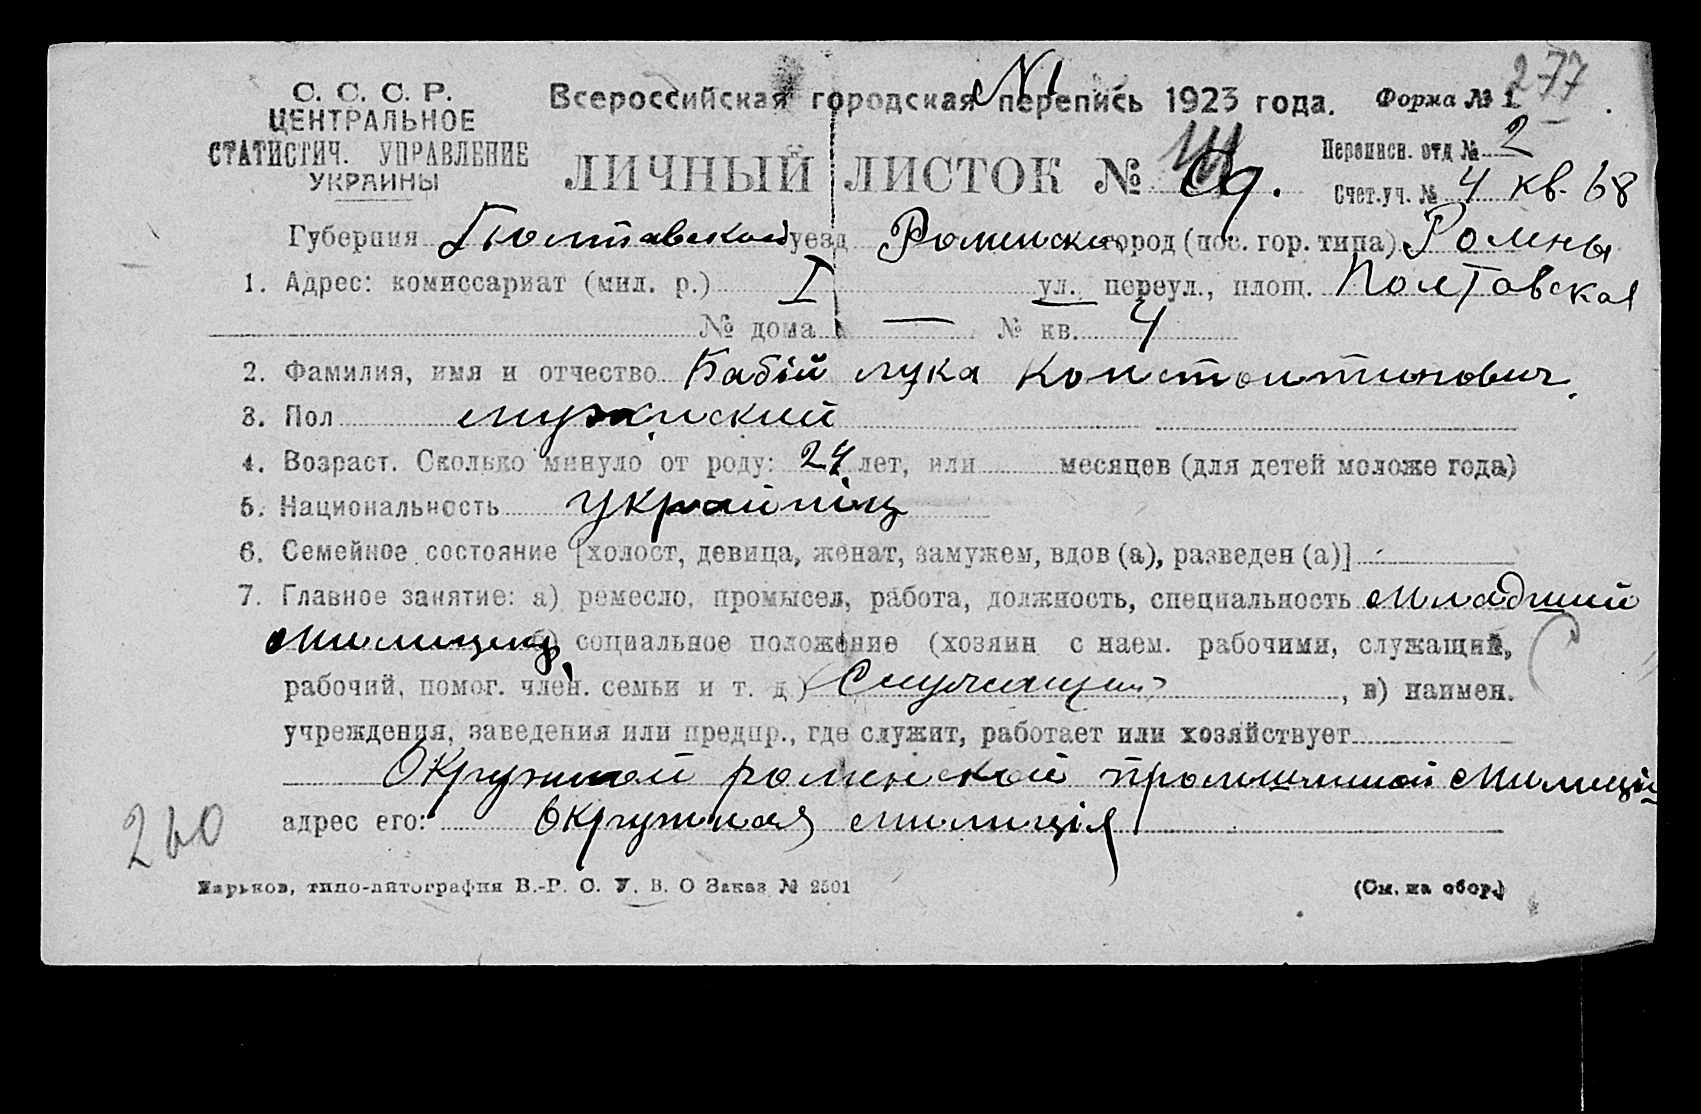 277
С. С. С. Р.
ЦЕНТРАЛЬНОЕ
СТАТИСТИЧ. УПРАВЛЕНИЕ
УКРАИНЫ
№ 1
Всероссийская городская перепись 1923 года. Форма № 1
ЛИЧНЫЙ ЛИСТОК №
Переписн. отд № 2
Счет.уч. № 4 кв. 68
Губерния Полтавской уезд Роменски город (пос. гор. типа) Ромны
1. Адрес: комиссариат (мил. р.) I ул. переул., площ. Полтавская
№ дома — № кв. 4
2. Фамилия, имя и отчество Бабій лука Константинович.
3. Пол мужиский
4. Возраст. Сколько минуло от роду: 24 лет, или месяцев (для детей моложе года)
5. Национальность українiц
6. Семейное состояние [холост, девица, женат, замужем, вдов (а), разведен (а)]
7. Главное занятие: а) ремесло, промысел, работа, должность, специальность младший
милицион б) социальное положение (хозяин с наем. рабочими, служащий,
рабочий, помог. член. семьи и т. д.) Служащий, в) наимен.
учреждения, заведения или предпр., где служит, работает или хозяйствует
Окружной роменской промишлиной милиціи
адрес его: Окружная милиція
260
Харьков, типо-литография В.-Р. С. У. В. О Заказ № 2501 (См. на обор.)